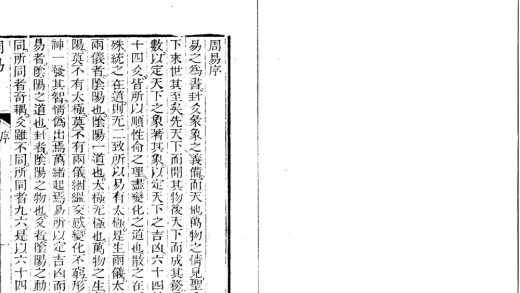 周易序
易之為書卦爻彖象之義備而天地萬物之情見聖
下來世其至矣先天下而開其物後天下而成其務
數以定天下之象著其象以定天下之吉凶六十四
十四爻皆所以順性命之理盡變化之道也散之在
殊統之在道則无二致所以易有太極是生兩儀太
兩儀者陰陽也陰陽一道也太極无極也萬物之生
陽莫不有太極莫不有兩儀絪縕交感變化不窮形
神一發其智情偽出焉萬緒起焉易所以定吉凶而
易者陰陽之道也卦者陰陽之物也爻者陰陽之動
同所同者奇耦爻雖不同所同者九六是以六十四
周易
序